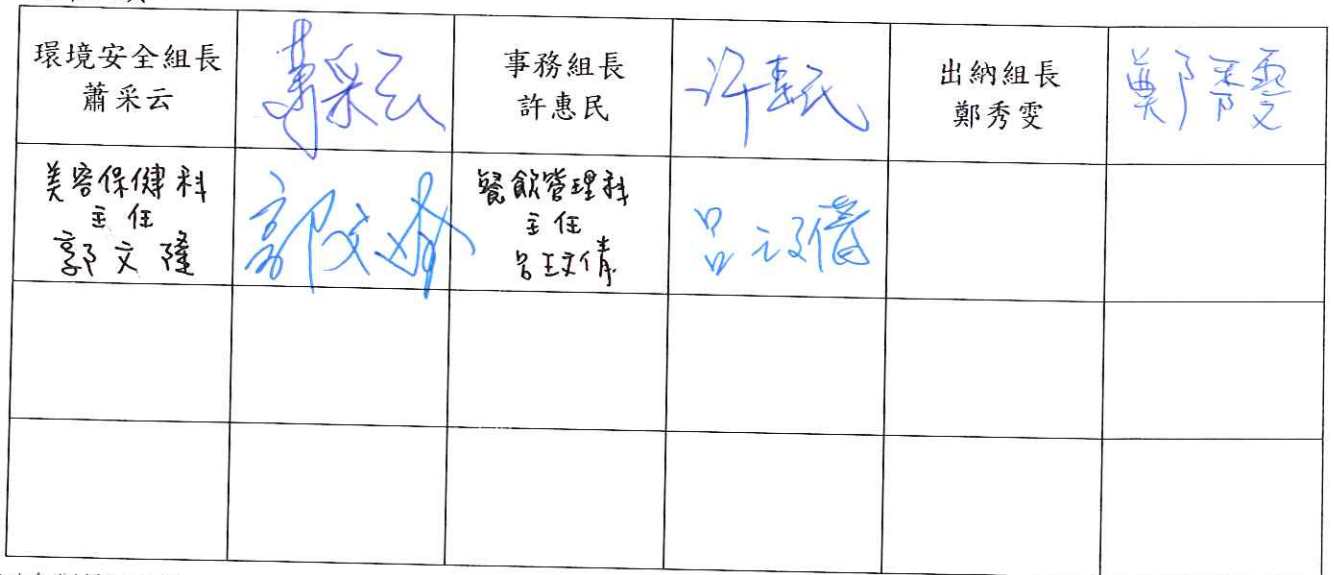 環境安全組長
蕭采云
蕭采云
事務組長
許惠民
许惠民
出納組長
鄭秀雯
鄭秀雯
美容保健科
主任
郭文隆
餐飲管理科
主任
呂玟倩